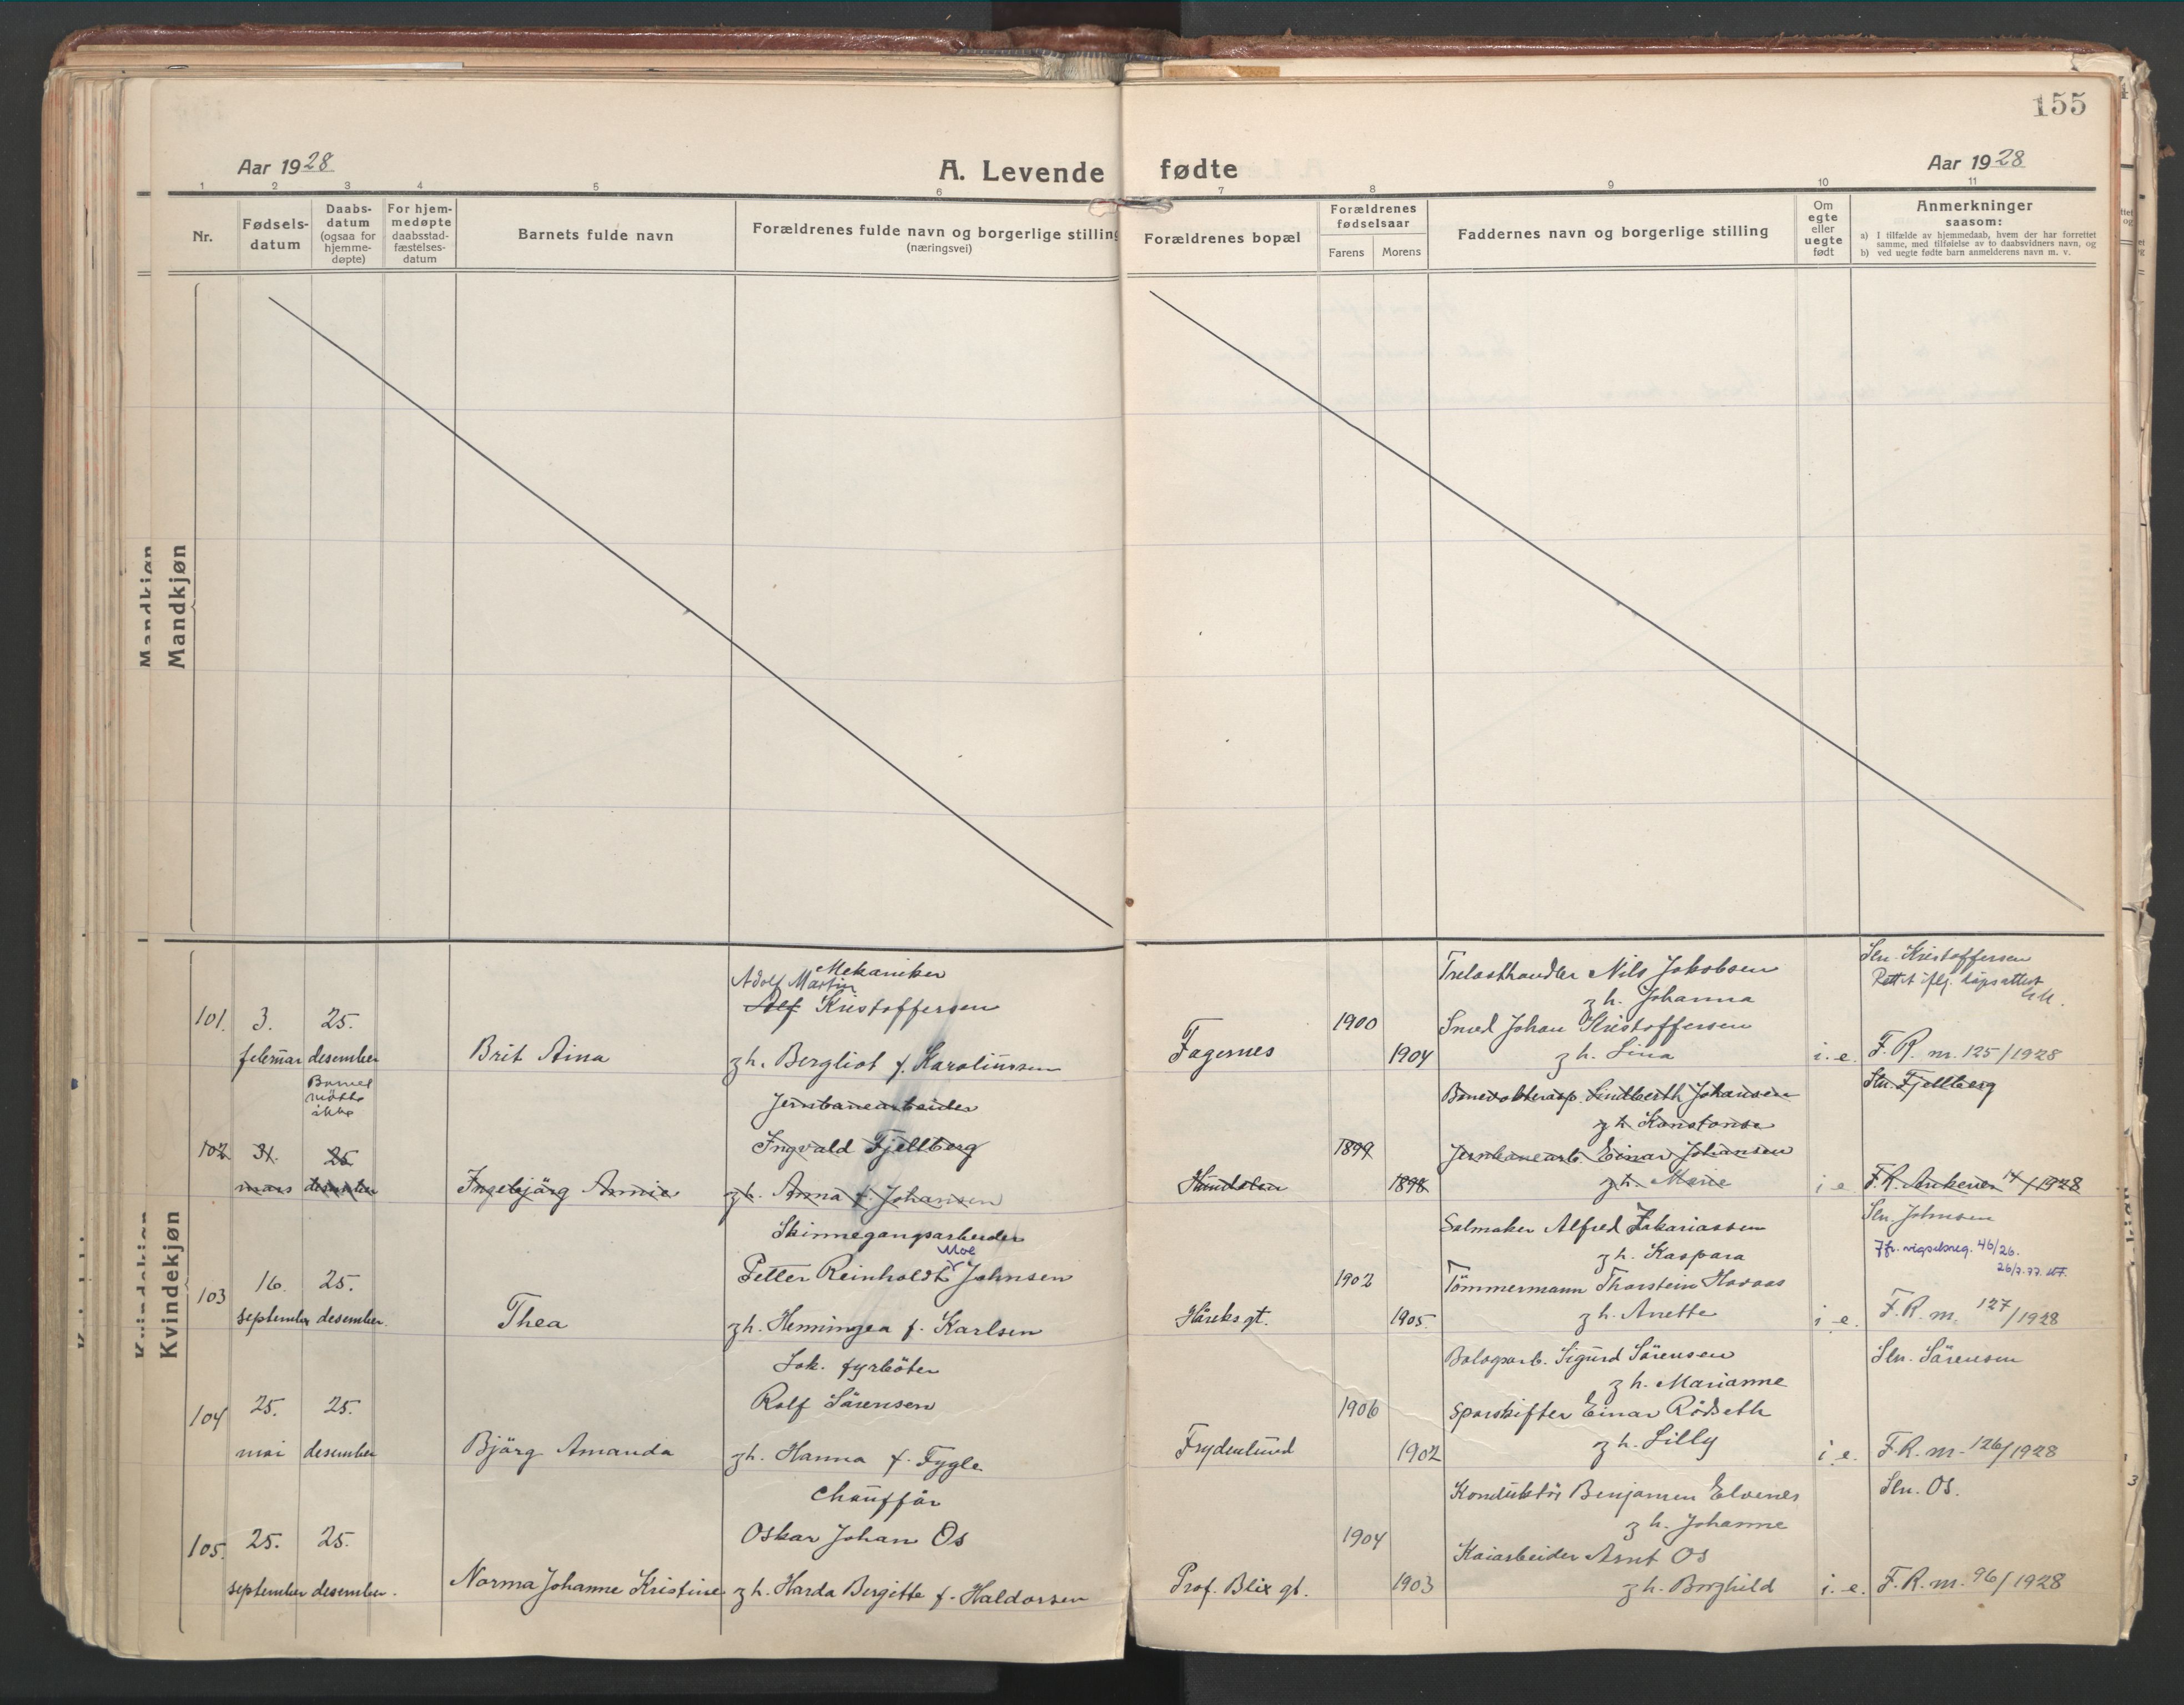 155
Aar 1928
A. Levende fødte
Aar 1928
1 2 3 4 5 6 7 8 9 10 11
Nr.
Fødsels-
datum
Daabs-
datum
(ogsaa for
hjemme-
døpte)
For hjem-
medøpte
daabsstad-
fæstelses-
datum
Barnets fulde navn
Forældrenes fulde navn og borgerlige stilling
(næringsvei)
Forældrenes bopæl
Forældrenes
fødselsaar
Farens Morens
Faddernes navn og borgerlige stilling
Om
egte
eller
uegte
født
Anmerkninger
saasom:
a) I tilfælde av hjemmedaab, hvem der har forrettet
samme, med tilføielse av to daabsvidners navn, og
b) ved uegte fødte barn anmelderens navn m. v.
Mandkjøn
Kvindekjøn
101. 3. februar
25. desember
Brit Aina
Mekaniker
Adolf Martin
Alf Kristoffersen
z h. Bergliot f. Karoliussen
Fagernes
1900
1904
Trelasthandler Nils Jakobsen
z h. Johanna
Smed Johan Kristoffersen
z h. Lina
i. e.
Sln. Kristoffersen
Rettet iflg. dåpsattest
F. R. nr. 125/1928
102 31. mars
Barnet
møtte
ikke
25 desember
Ingebjørg Annie
Jernbanearbeider
Ingvald Fjellberg
z h. Anna f. Johansen
1899
1898
Banevokterasp. Lindberth Johansen
z h. Konstanse
Jernbanearb. Einar Johansen
z h. Marie
i e.
Sln. Fjellberg
F. R. Ankenes 14/1928
103 16. september
25. desember.
Thea
Skinnegangsarbeider
Moe
Petter Reinholdt Johnsen
z h. Henningea f. Karlsen
Håreks gt.
1902
1905.
Salmaker Alfred Zakariassen
z h. Kaspara
Tömmermann Thorstein Havaas
z h. Anette
i e.
Sln. Johnsen
Jfr. vigselsreg. 46/26.
26/7.77.
F. R. nr. 127/1928
104 25. mai
25. desember
Bjørg Amanda
Lok. fyrböter
Rolf Sörensen
z h. Hanna f. Fygle
Frydenlund
1906
1902
Bologsarb. Sigurd Sörensen
z h. Marianne
Sporskifter Einar Rödseth
z h. Lilly
i e.
Sln. Sörensen
F. R. nr. 126/1928
105. 25. september
25. desember.
Norma Johanne Kristine
Chauffør
Oskar Johan Os
z h. Harda Bergitte f. Haldorsen
Prof. Blix gt.
1904
1903
Konduktör Benjamin Elvenes
z h. Johanne
Kaiarbeider Arnt Os
z h. Borghild
i. e.
Sln. Os.
F. R. nr. 96/1928